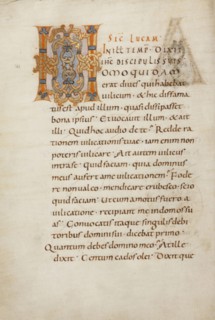 SIC LUCAM
IN ILL TEMP DIXIT
IHC DISCIPULIS SUIS
OMO QUIDAM
erat diues qui habebat
uilicum · & hic diffama
tus est apud illum · quasi dissipasset
bona ipsius · Et uocauit illum · & ait
illi · Quid hoc audio de te · Redde ra
tionem uilicationis tuae · iam enim non
poteris uilicare · Ait autem uilicus
intra se · Quid faciam · quia dominus
meus aufert a me uilicationem · Fode
re non ualeo · mendicare erubesco · scio
quid faciam · Ut cum amotus fuero a
uilicatione · recipiant me in domos su
as · Conuocatis itaque singulis debi
toribus domini sui · dicebat primo ·
Quantum debes domino meo · At ille
dixit · Centum cados olei · Dixitque